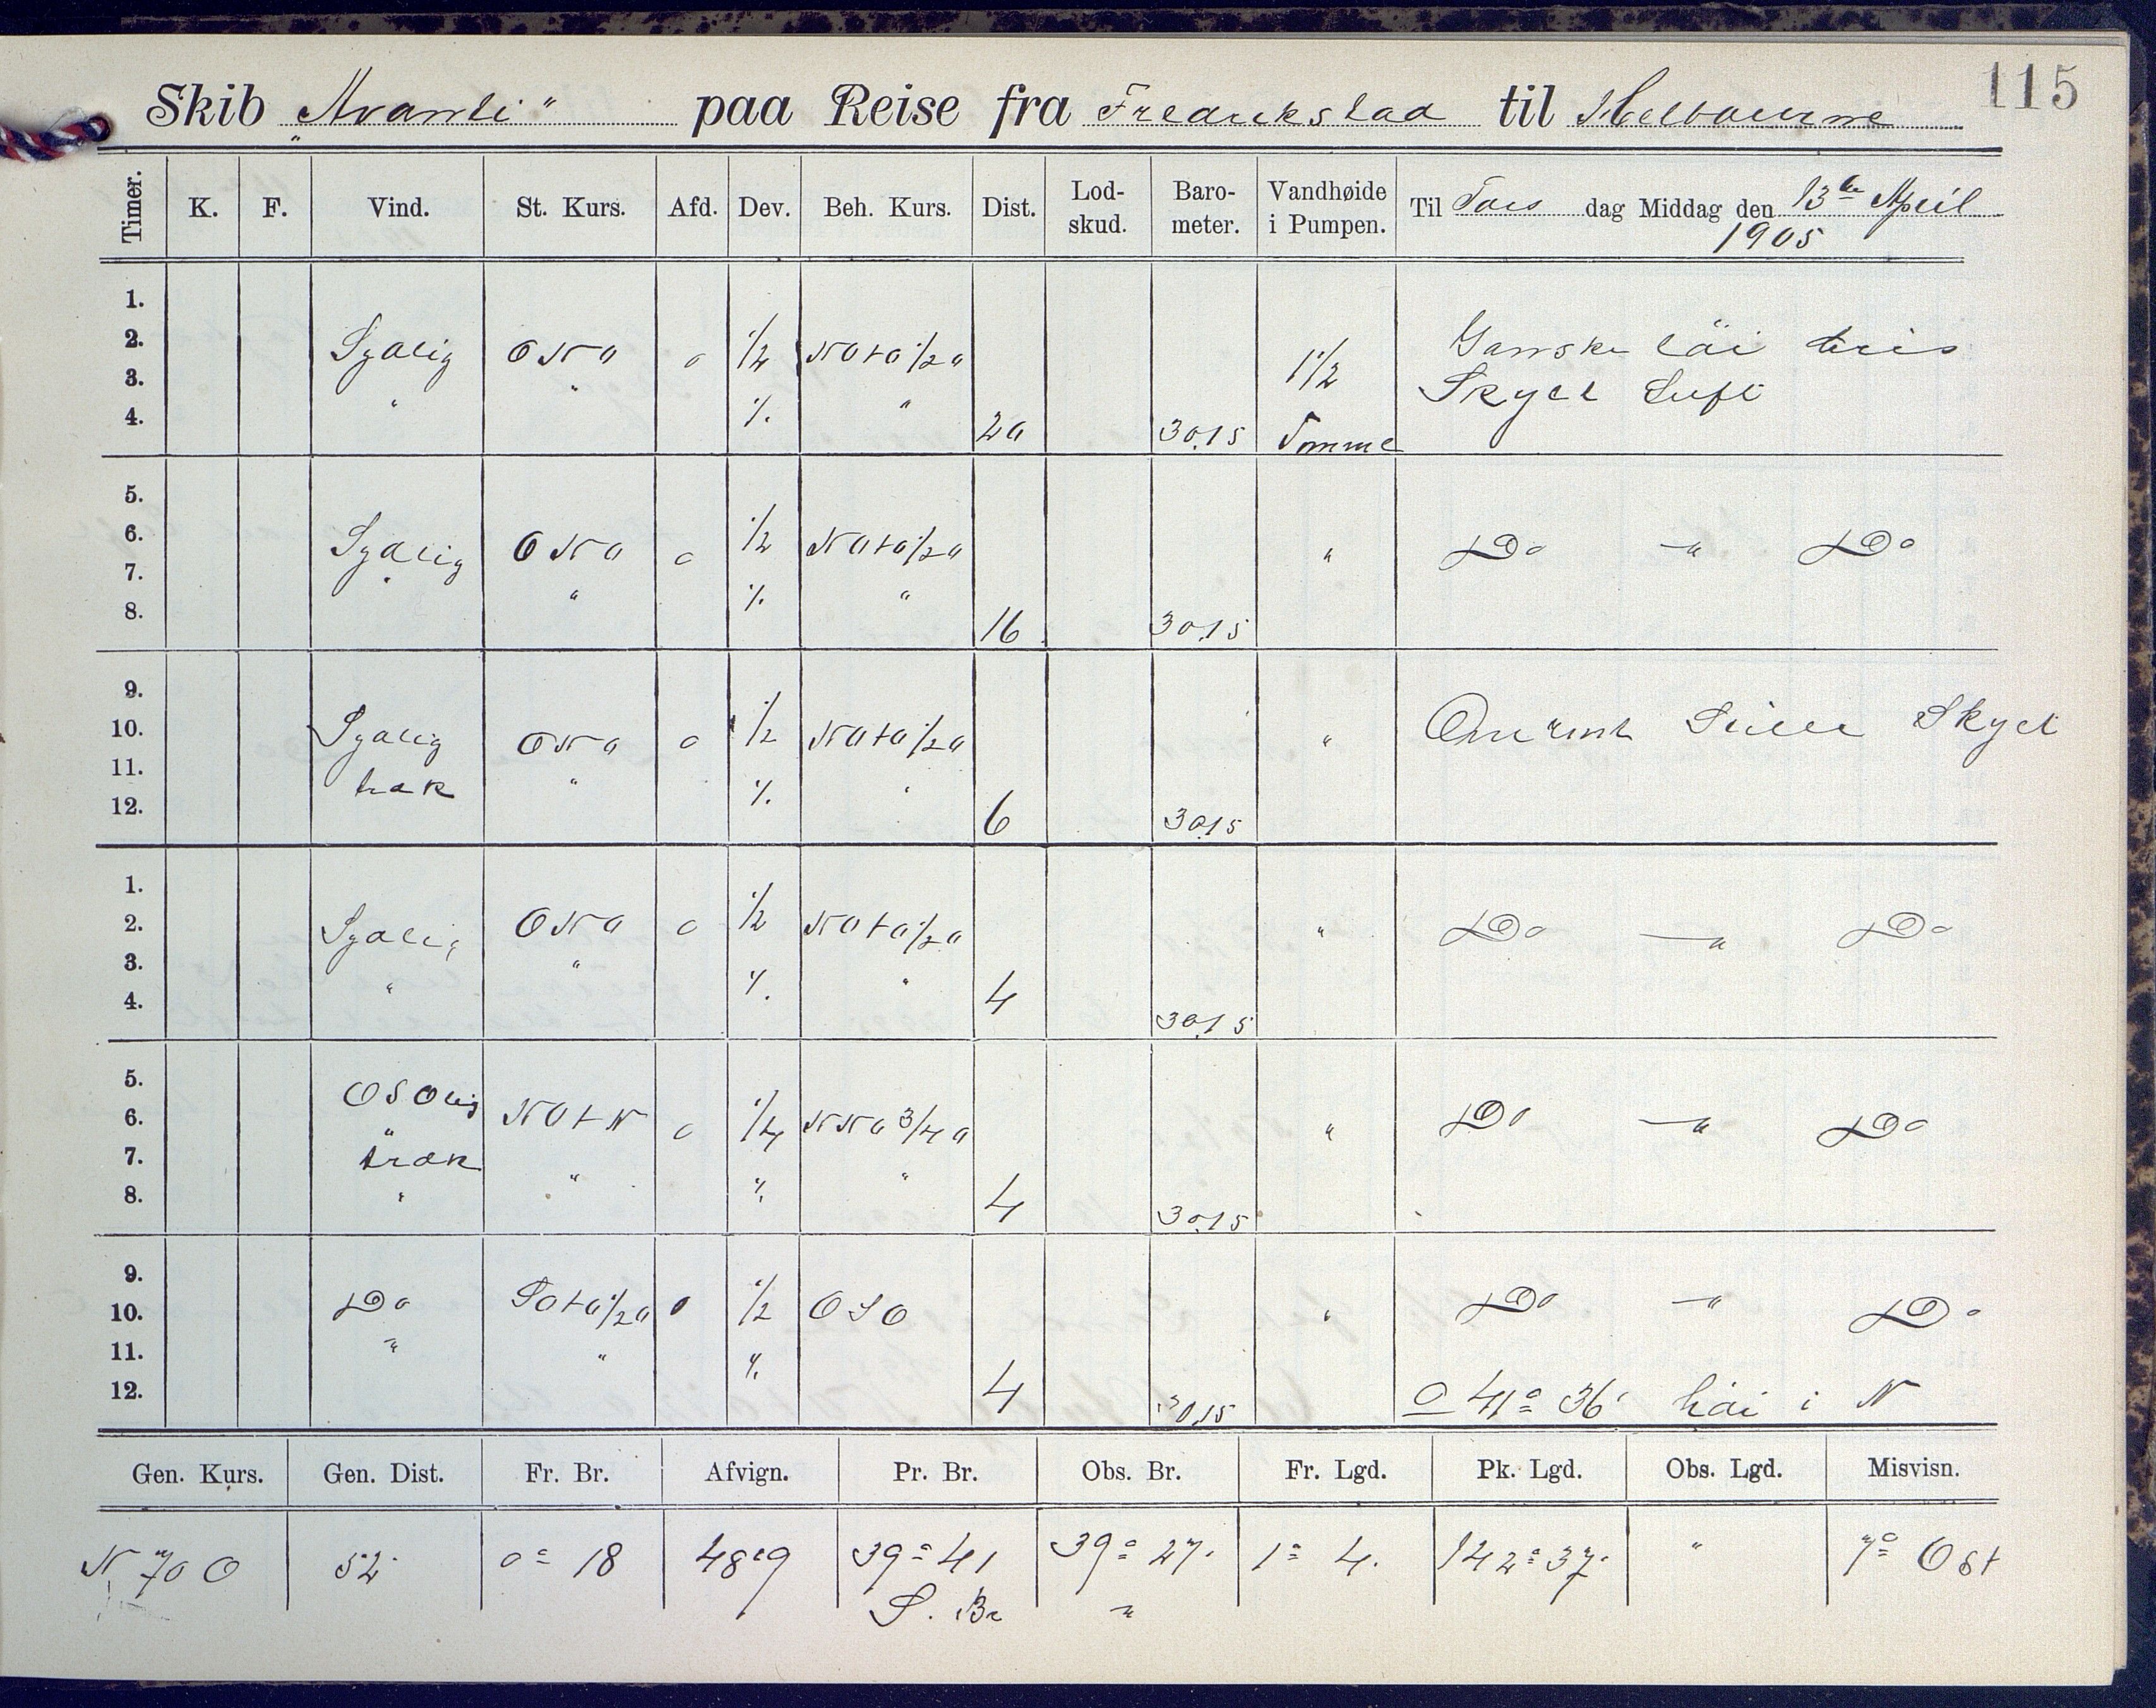 115
Skib „Avanti“ paa Reise fra Fredrikstad til Melbourne
Timer. K. F. Vind. St. Kurs. Afd. Dev. Beh. Kurs. Dist. Lod-skud. Baro-meter. Vandhøide i Pumpen. Til Tors dag Middag den 13de April
1905
1.
2. Sydlig ONO 0 1/2 NOtO1/2O 1 1/2 Ganske løi bris
3. " " " Skyet Luft
4. " % 20 30.15 Tomme
5.
6. Sydlig ONO 0 1/2 NOtO1/2O " Do — " Do
7. " " % "
8. 16 30.15
9.
10. Sydlig ONO 0 1/2 NOtO1/2O " Stille Skyet
11. træk " % "
12. 6 30.15
1.
2. Sydlig ONO 0 1/2 NOtO1/2O " Do — " Do
3. " "
4. " % " 4 30.15
5. OSOlig
6. " NOtN 0 1/4 NNO3/4O " Do — " Do
7. træk " % "
8. " 4 30.15
9.
10. Do SOtO1/2O 0 1/2 OSO " Do — " Do
11. " " %
12. 4 30.15 O 41° 36' høi i N
Gen. Kurs. Gen. Dist. Fr. Br. Afvign. Pr. Br. Obs. Br. Fr. Lgd. Pk. Lgd. Obs. Lgd. Misvisn.
N 70 O 52' 0° 18 48'9 39° 41 39° 27' 1° 4' 142° 37' " 7° Ost
S. Br "